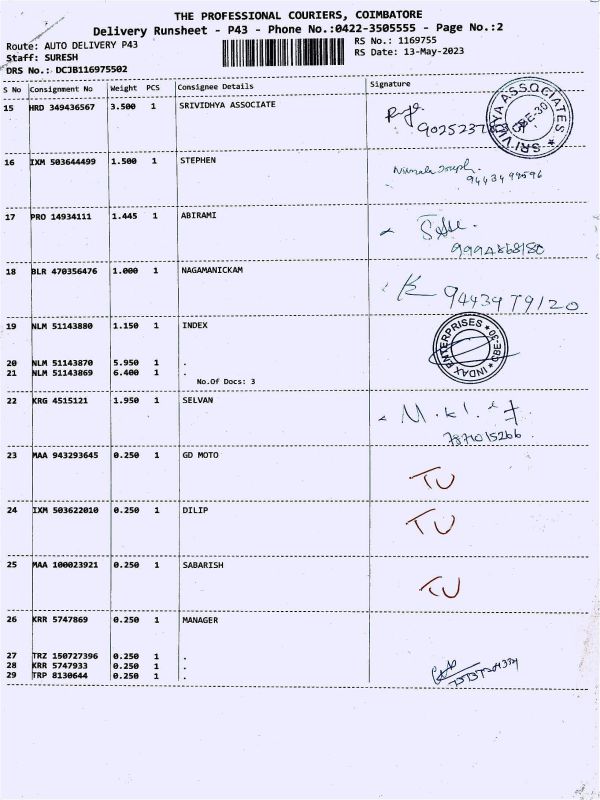 THE PROFESSIONAL COURIERS, COIMBATORE
Delivery Runsheet - P43 - Phone No.:0422-3505555 - Page No.:2
Route: AUTO DELIVERY P43 RS No.: 1169755
Staff: SURESH RS Date: 13-May-2023
DRS No.: DCJB116975502
S No Consignment No Weight PCS Consignee Details Signature
15 HRD 349436567 3.500 1 SRIVIDHYA ASSOCIATE
SRIVIDYA ASSOCIATES CBE-30
16 IXM 503644499 1.500 1 STEPHEN
17 PRO 14934111 1.445 1 ABIRAMI
18 BLR 470356476 1.000 1 NAGAMANICKAM
94439 79120
19 NLM 51143880 1.150 1 INDEX
INDAX ENTERPRISES CBE-30
20 NLM 51143870 5.950 1 .
21 NLM 51143869 6.400 1 .
No.Of Docs: 3
22 KRG 4515121 1.950 1 SELVAN
7871015266
23 MAA 943293645 0.250 1 GD MOTO
TU
24 IXM 503622010 0.250 1 DILIP
TU
25 MAA 100023921 0.250 1 SABARISH
TU
26 KRR 5747869 0.250 1 MANAGER
27 TRZ 150727396 0.250 1 .
28 KRR 5747933 0.250 1 .
29 TRP 8130644 0.250 1 .